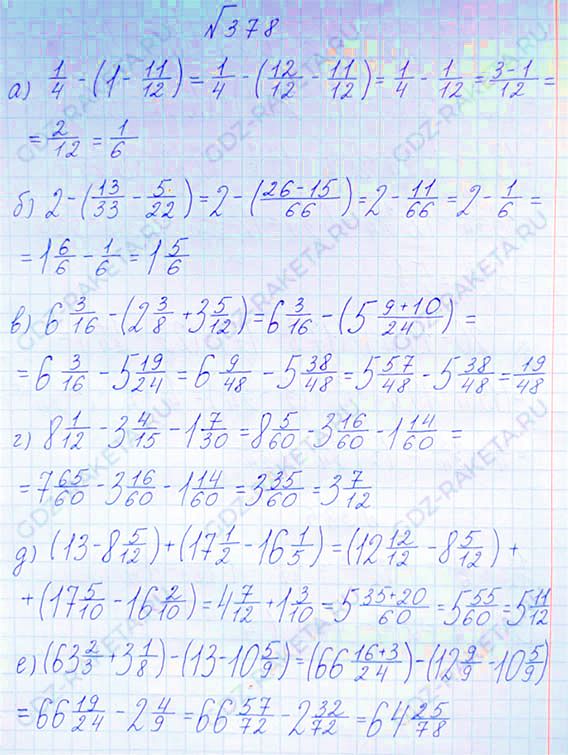 №378
а) 1/4 - (1 - 11/12) = 1/4 - (12/12 - 11/12) = 1/4 - 1/12 = (3-1)/12 =
= 2/12 = 1/6
б) 2 - (13/33 - 5/22) = 2 - ((26-15)/66) = 2 - 11/66 = 2 - 1/6 =
= 1 6/6 - 1/6 = 1 5/6
в) 6 3/16 - (2 3/8 + 3 5/12) = 6 3/16 - (5 (9+10)/24) =
= 6 3/16 - 5 19/24 = 6 9/48 - 5 38/48 = 5 57/48 - 5 38/48 = 19/48
г) 8 1/12 - 3 4/15 - 1 7/30 = 8 5/60 - 3 16/60 - 1 14/60 =
= 7 65/60 - 3 16/60 - 1 14/60 = 3 35/60 = 3 7/12
д) (13 - 8 5/12) + (17 1/2 - 16 1/5) = (12 12/12 - 8 5/12) +
+ (17 5/10 - 16 2/10) = 4 7/12 + 1 3/10 = 5 (35+20)/60 = 5 55/60 = 5 11/12
е) (63 2/3 + 3 1/8) - (13 - 10 5/9) = (66 (16+3)/24) - (12 9/9 - 10 5/9)
= 66 19/24 - 2 4/9 = 66 57/72 - 2 32/72 = 64 25/78
GDZ-RAKETA.RU